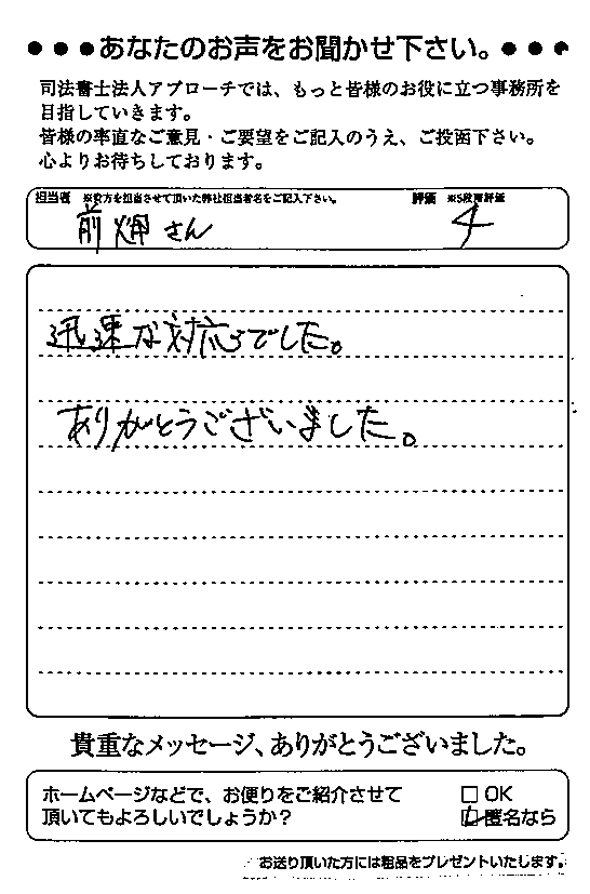 ●●●あなたのお声をお聞かせ下さい。●●●
司法書士法人アプローチでは、もっと皆様のお役に立つ事務所を
目指していきます。
皆様の率直なご意見・ご要望をご記入のうえ、ご投函下さい。
心よりお待ちしております。
担当者 ※貴方を担当させて頂いた弊社担当者名をご記入下さい。 評価 ※5段階評価
前畑さん 4
迅速な対応でした。
ありがとうございました。
貴重なメッセージ、ありがとうございました。
ホームページなどで、お便りをご紹介させて □ OK
頂いてもよろしいでしょうか? ☑ 匿名なら
お送り頂いた方には粗品をプレゼントいたします。